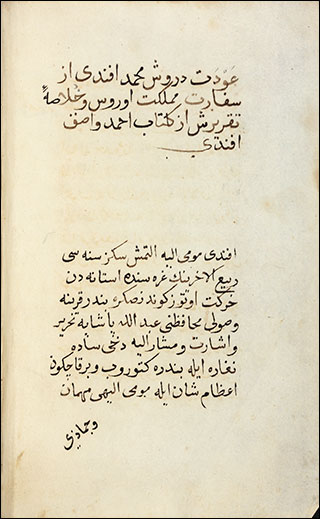 عودت دروش محمد افندی از
سفارت مملکت اوروس و خلاصهٔ
تقریرش از کتاب احمد واصف
افندی
افندی مومی الیه التمش سکز سنه سی
ربیع الاخرینک غره سنده استانه دن
حرکت اوتوز کوندنصکره بندر قرینه
وصولی محافظی عبد الله پاشایه تحریر
واشارت و مشار الیه دخی ساده
نغاره ایله بندره کتوروب و برقاچکون
اعظام شان ایله مومی الیهی مهمان